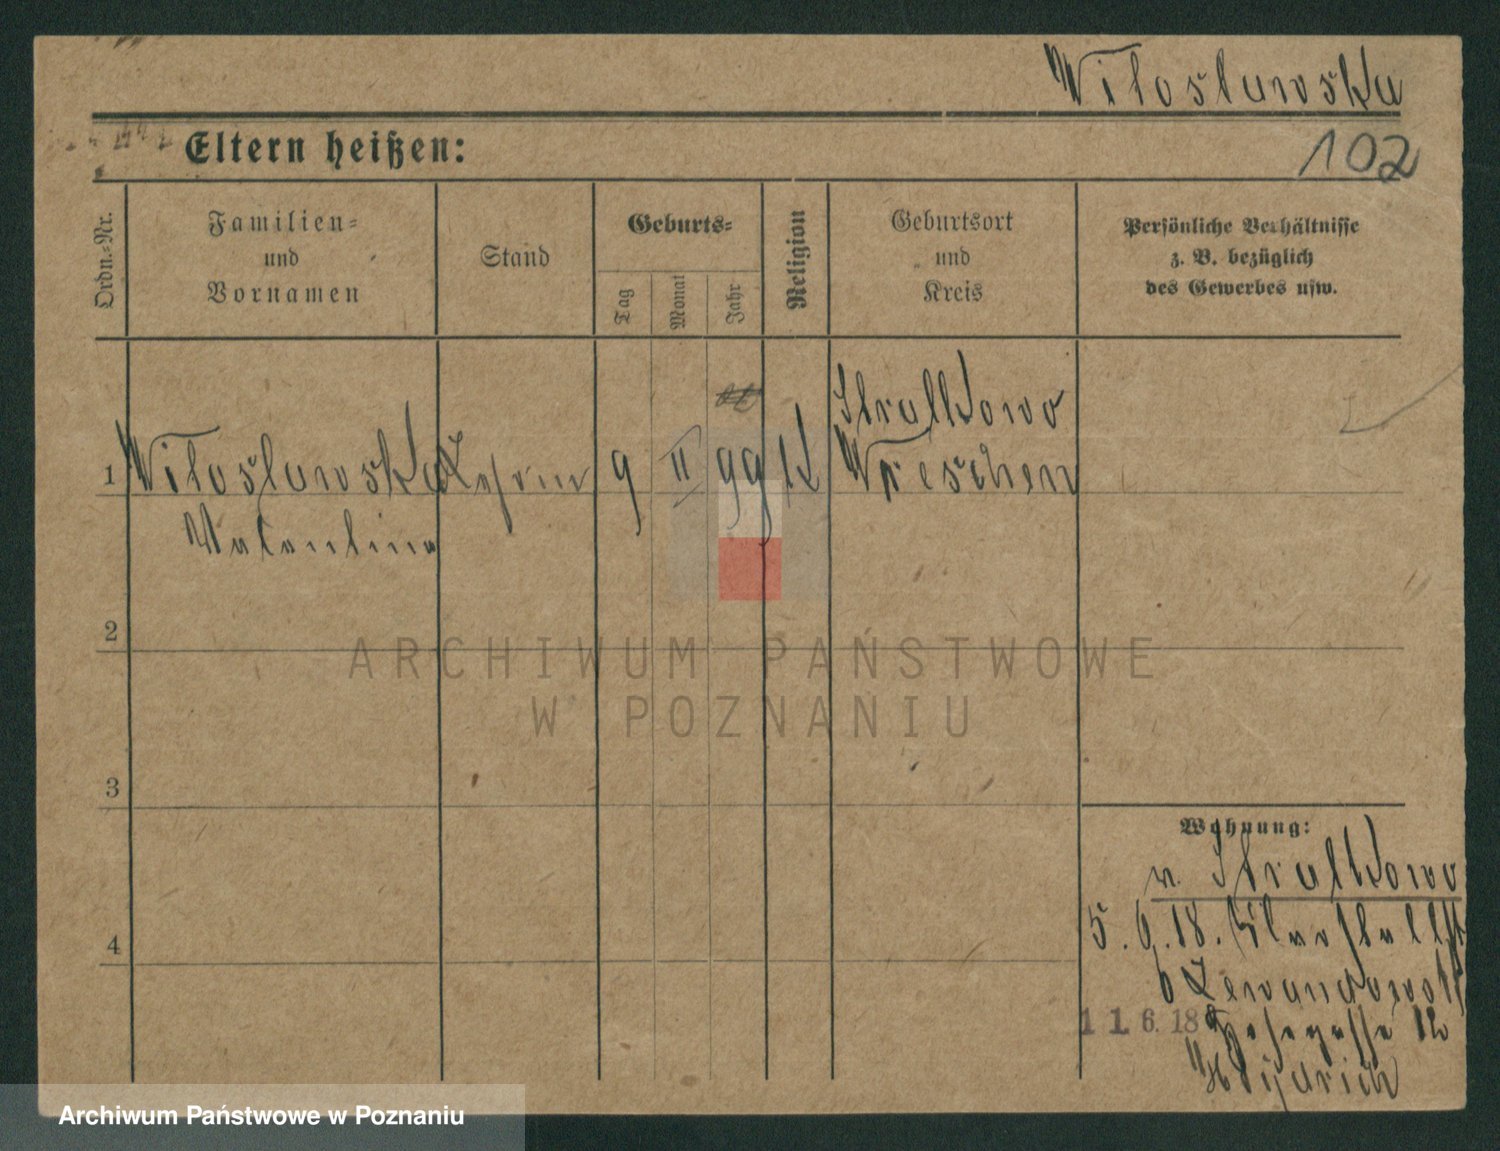 Witoslawska
102
Eltern heißen:
Ordn.-Nr.
Familien-
und
Vornamen
Stand
Geburts-
Tag
Monat
Jahr
Religion
Geburtsort
und
Kreis
Persönliche Verhältnisse
z. B. bezüglich
des Gewerbes usw.
1
Witoslawska
Valentina
9
II
99
K
Stralkowo
Wreschen
2
3
4
Wohnung:
v. Stralkowo
5.6.18.
11. 6. 18
12
ARCHIWUM PAŃSTWOWE
W POZNANIU
Archiwum Państwowe w Poznaniu